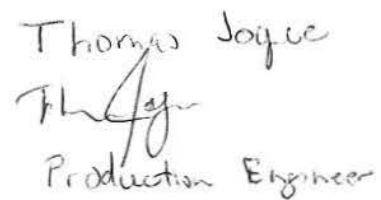 Thomas Joyce
Production Engineer